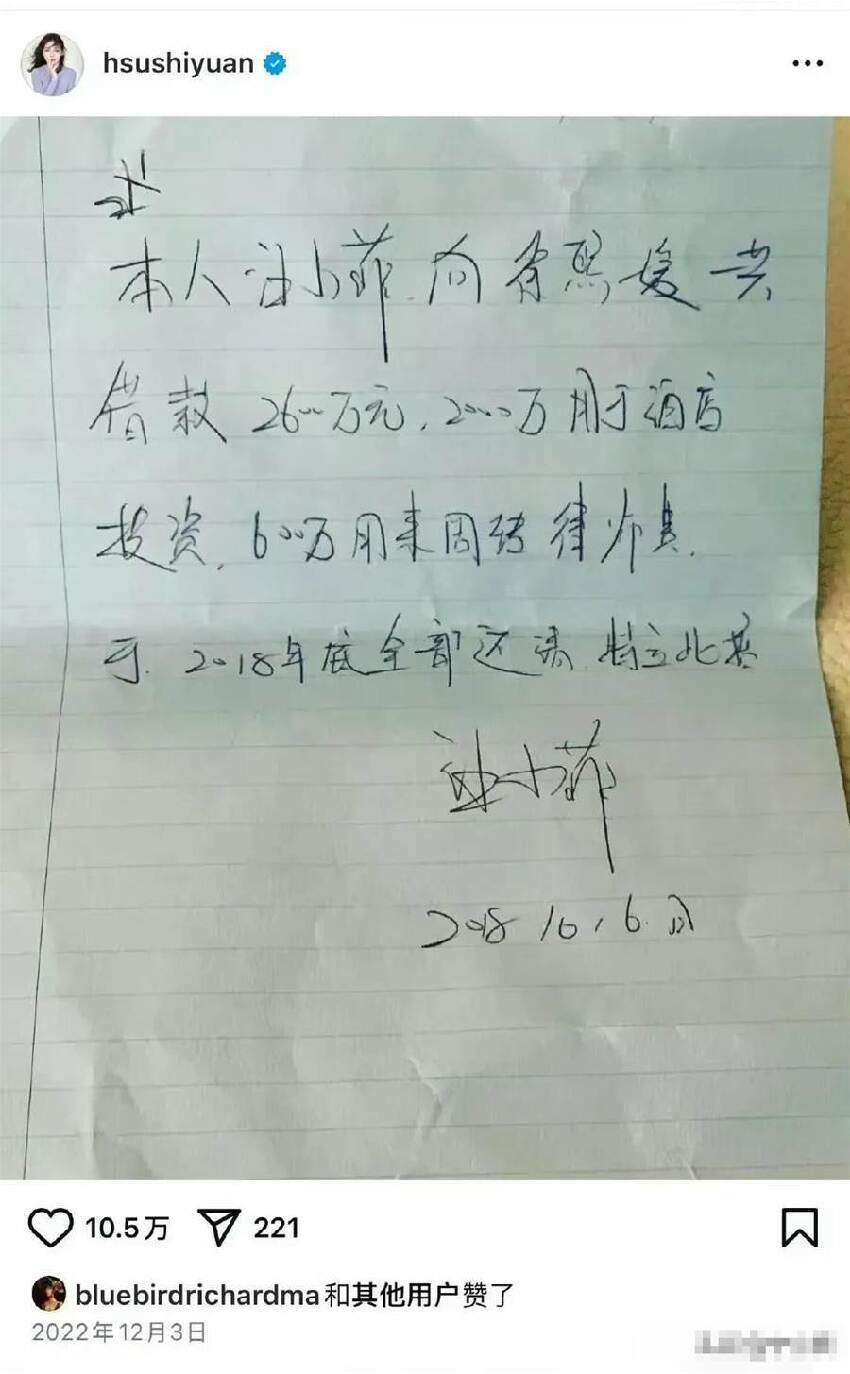 hsushiyuan
本人汪小菲向徐熙媛共
借款2600万元，2000万用于酒店
投资，600万用来周转律师费，
于2018年底全部还清 特立此条
汪小菲
2018 10，6日
10.5万 221
bluebirdrichardma和其他用户赞了
2022年12月3日